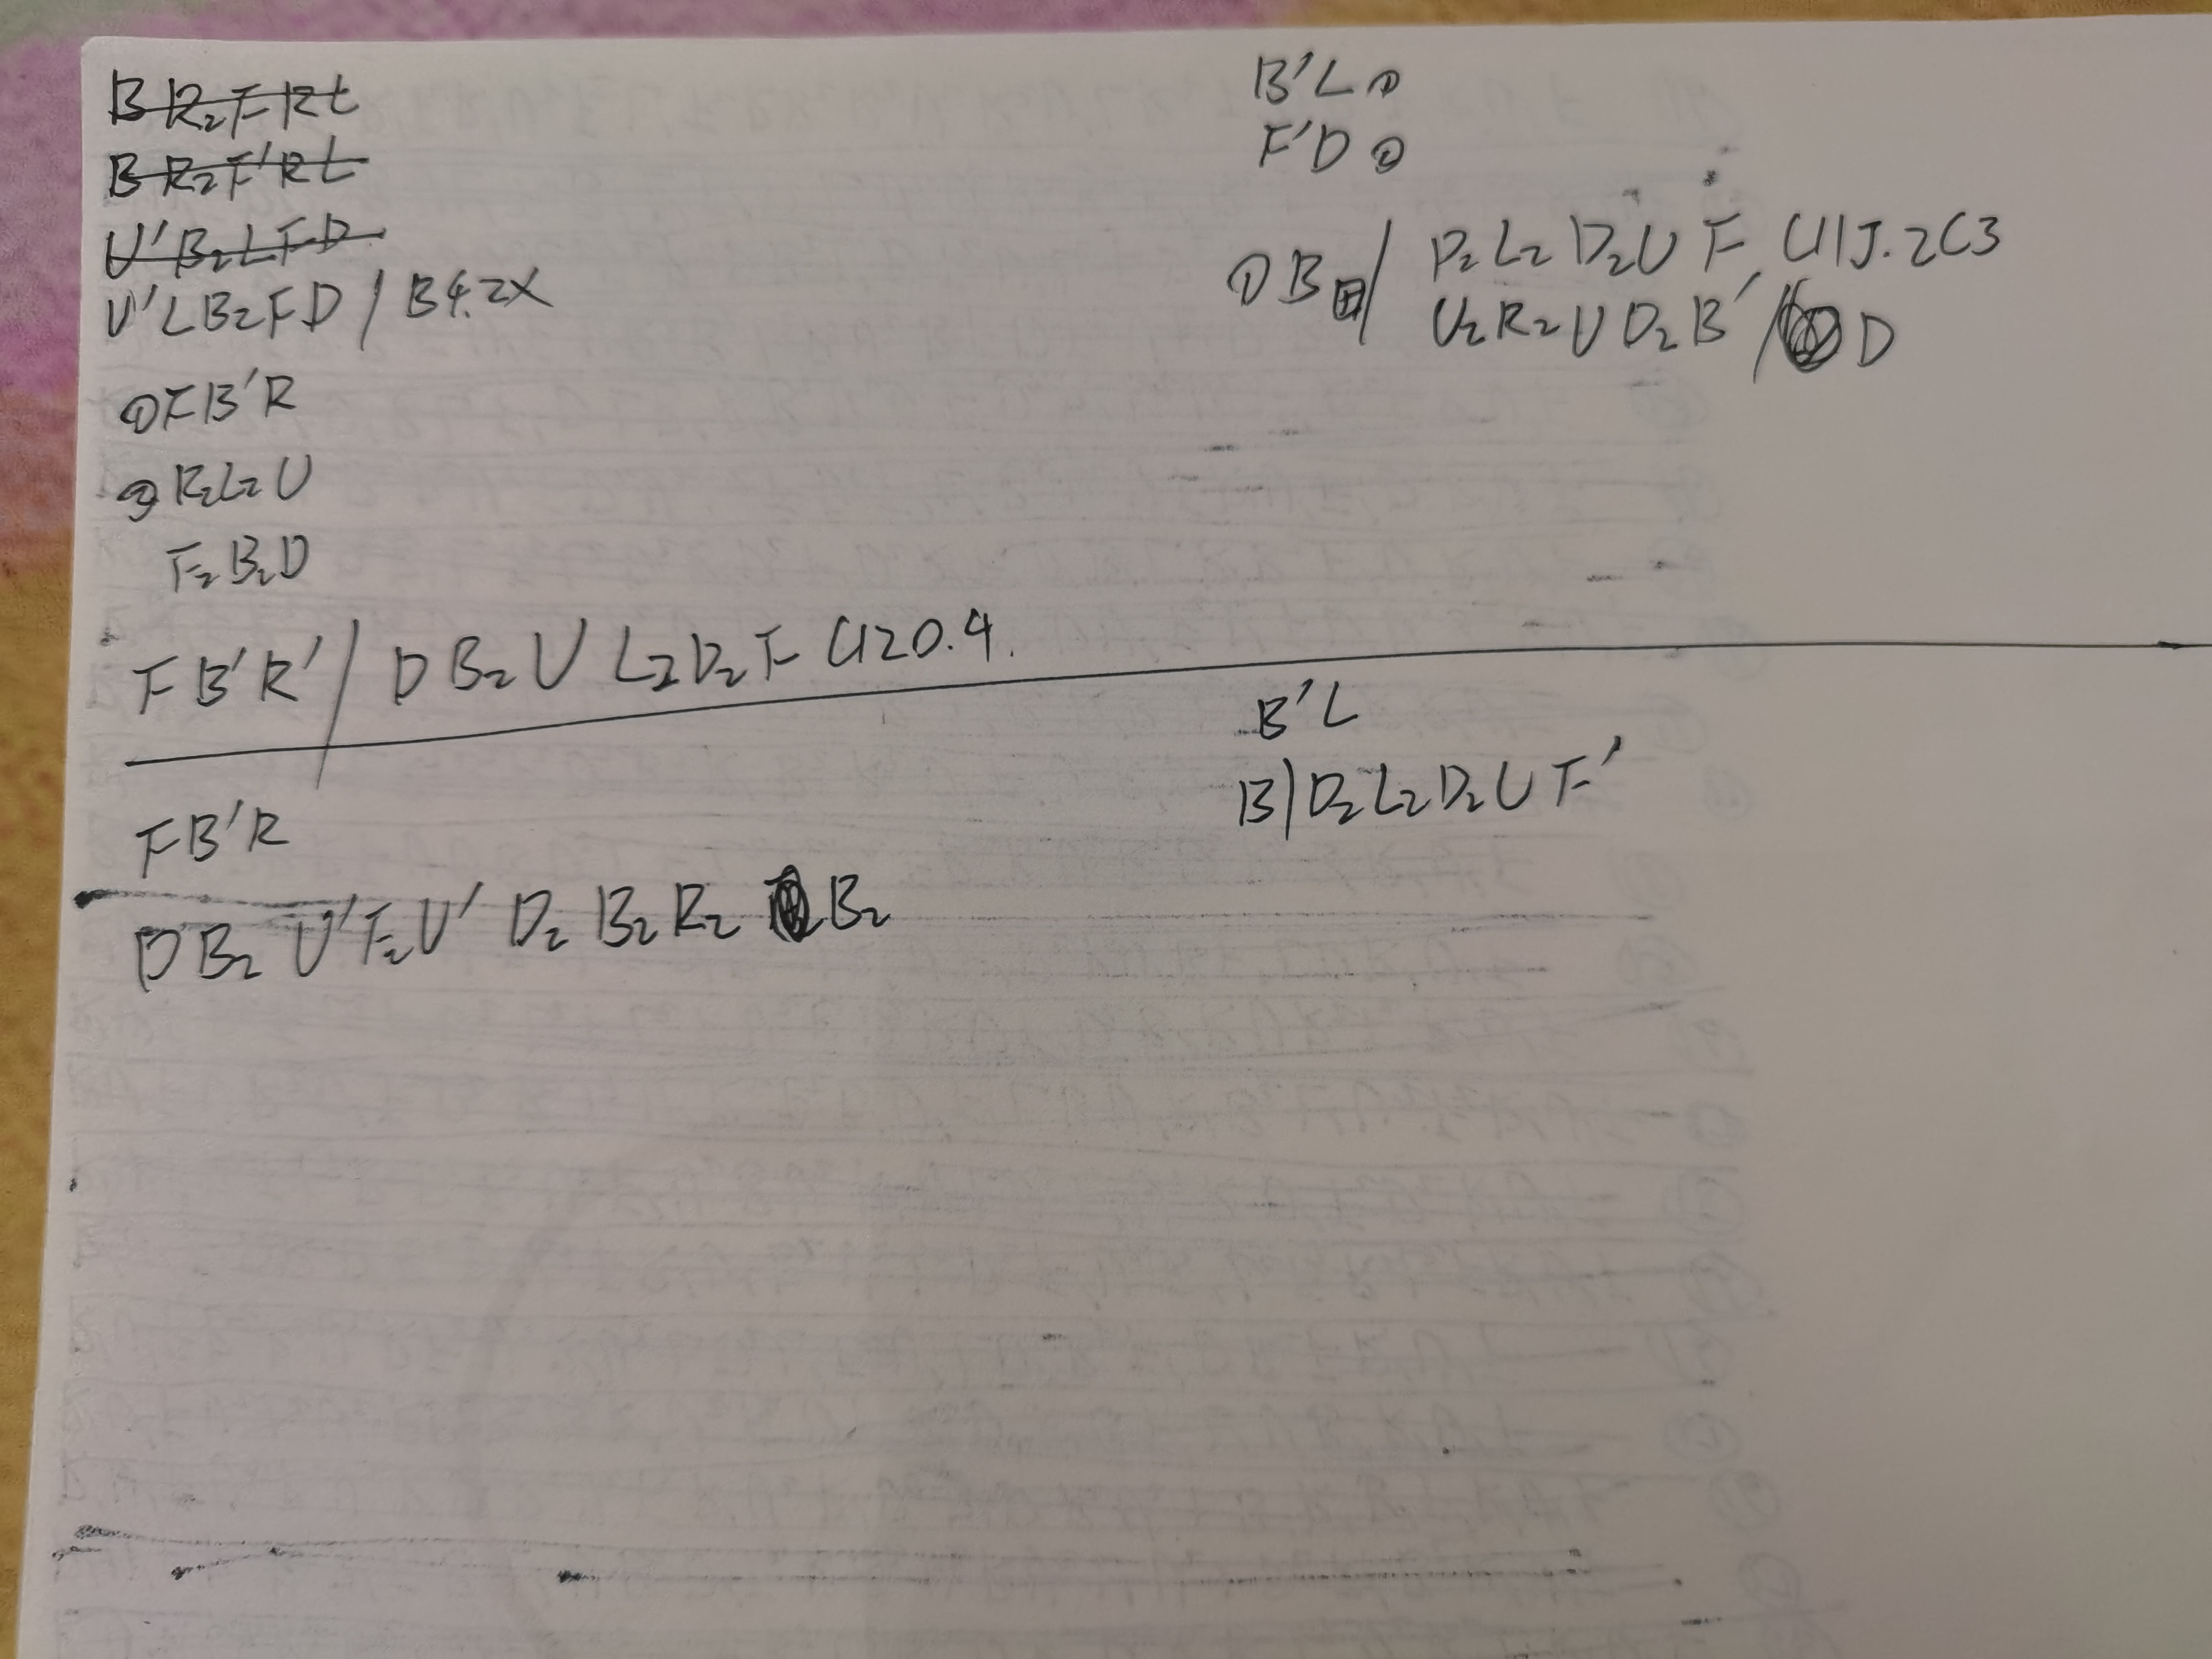 B R2 F R L
B R2 F' R L
U' B2 L F D
U' L B2 F D / B4.2X
① F B' R
② R2 L2 U
F2 B2 D
F B' R' / D B2 U L2 D2 F U20.4.
F B' R
D B2 U' F2 U' D2 B2 R2 B2
B' L ①
F' D ②
① B / D2 L2 D2 U F U1J.2C3
U2 R2 U D2 B' / D
B' L
B | D2 L2 D2 U F'